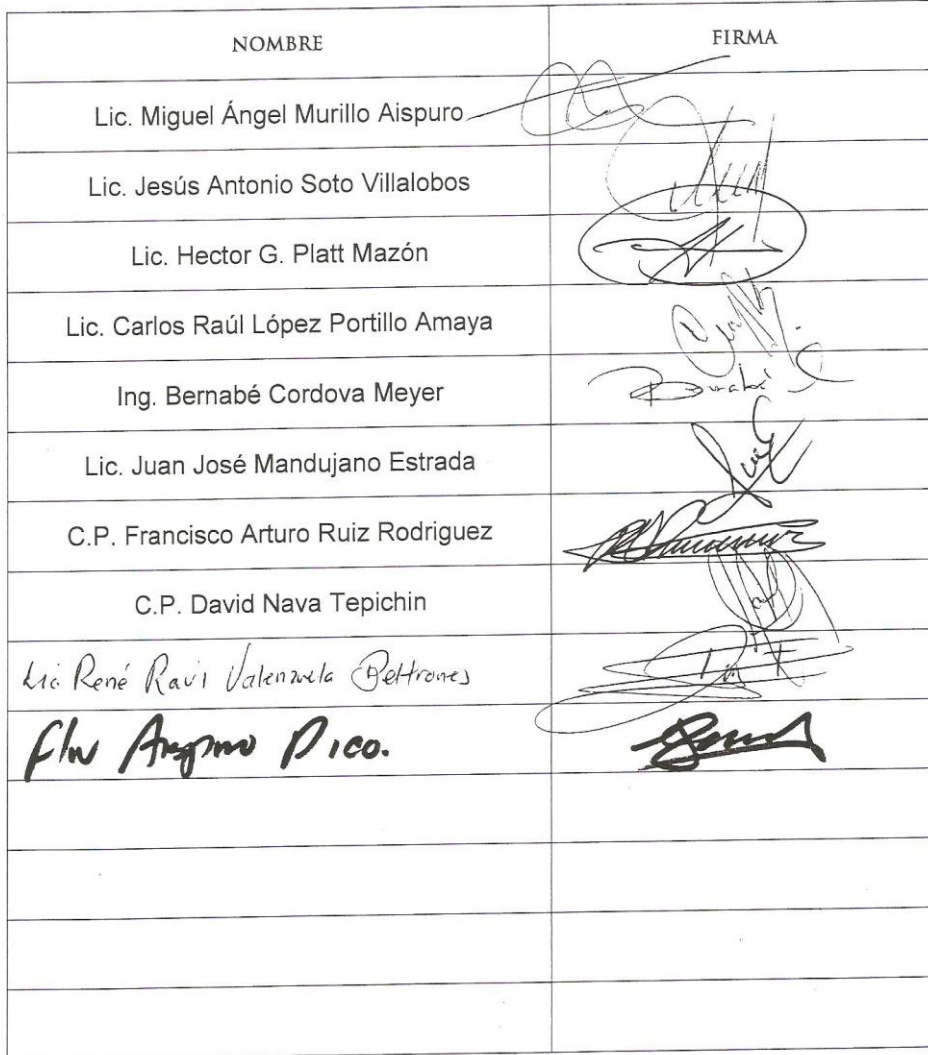 NOMBRE FIRMA
Lic. Miguel Ángel Murillo Aispuro
Lic. Jesús Antonio Soto Villalobos
Lic. Hector G. Platt Mazón
Lic. Carlos Raúl López Portillo Amaya
Ing. Bernabé Cordova Meyer Bernabé
Lic. Juan José Mandujano Estrada
C.P. Francisco Arturo Ruiz Rodriguez
C.P. David Nava Tepichin
Lic René Valenzuela Beltrones
Pico.